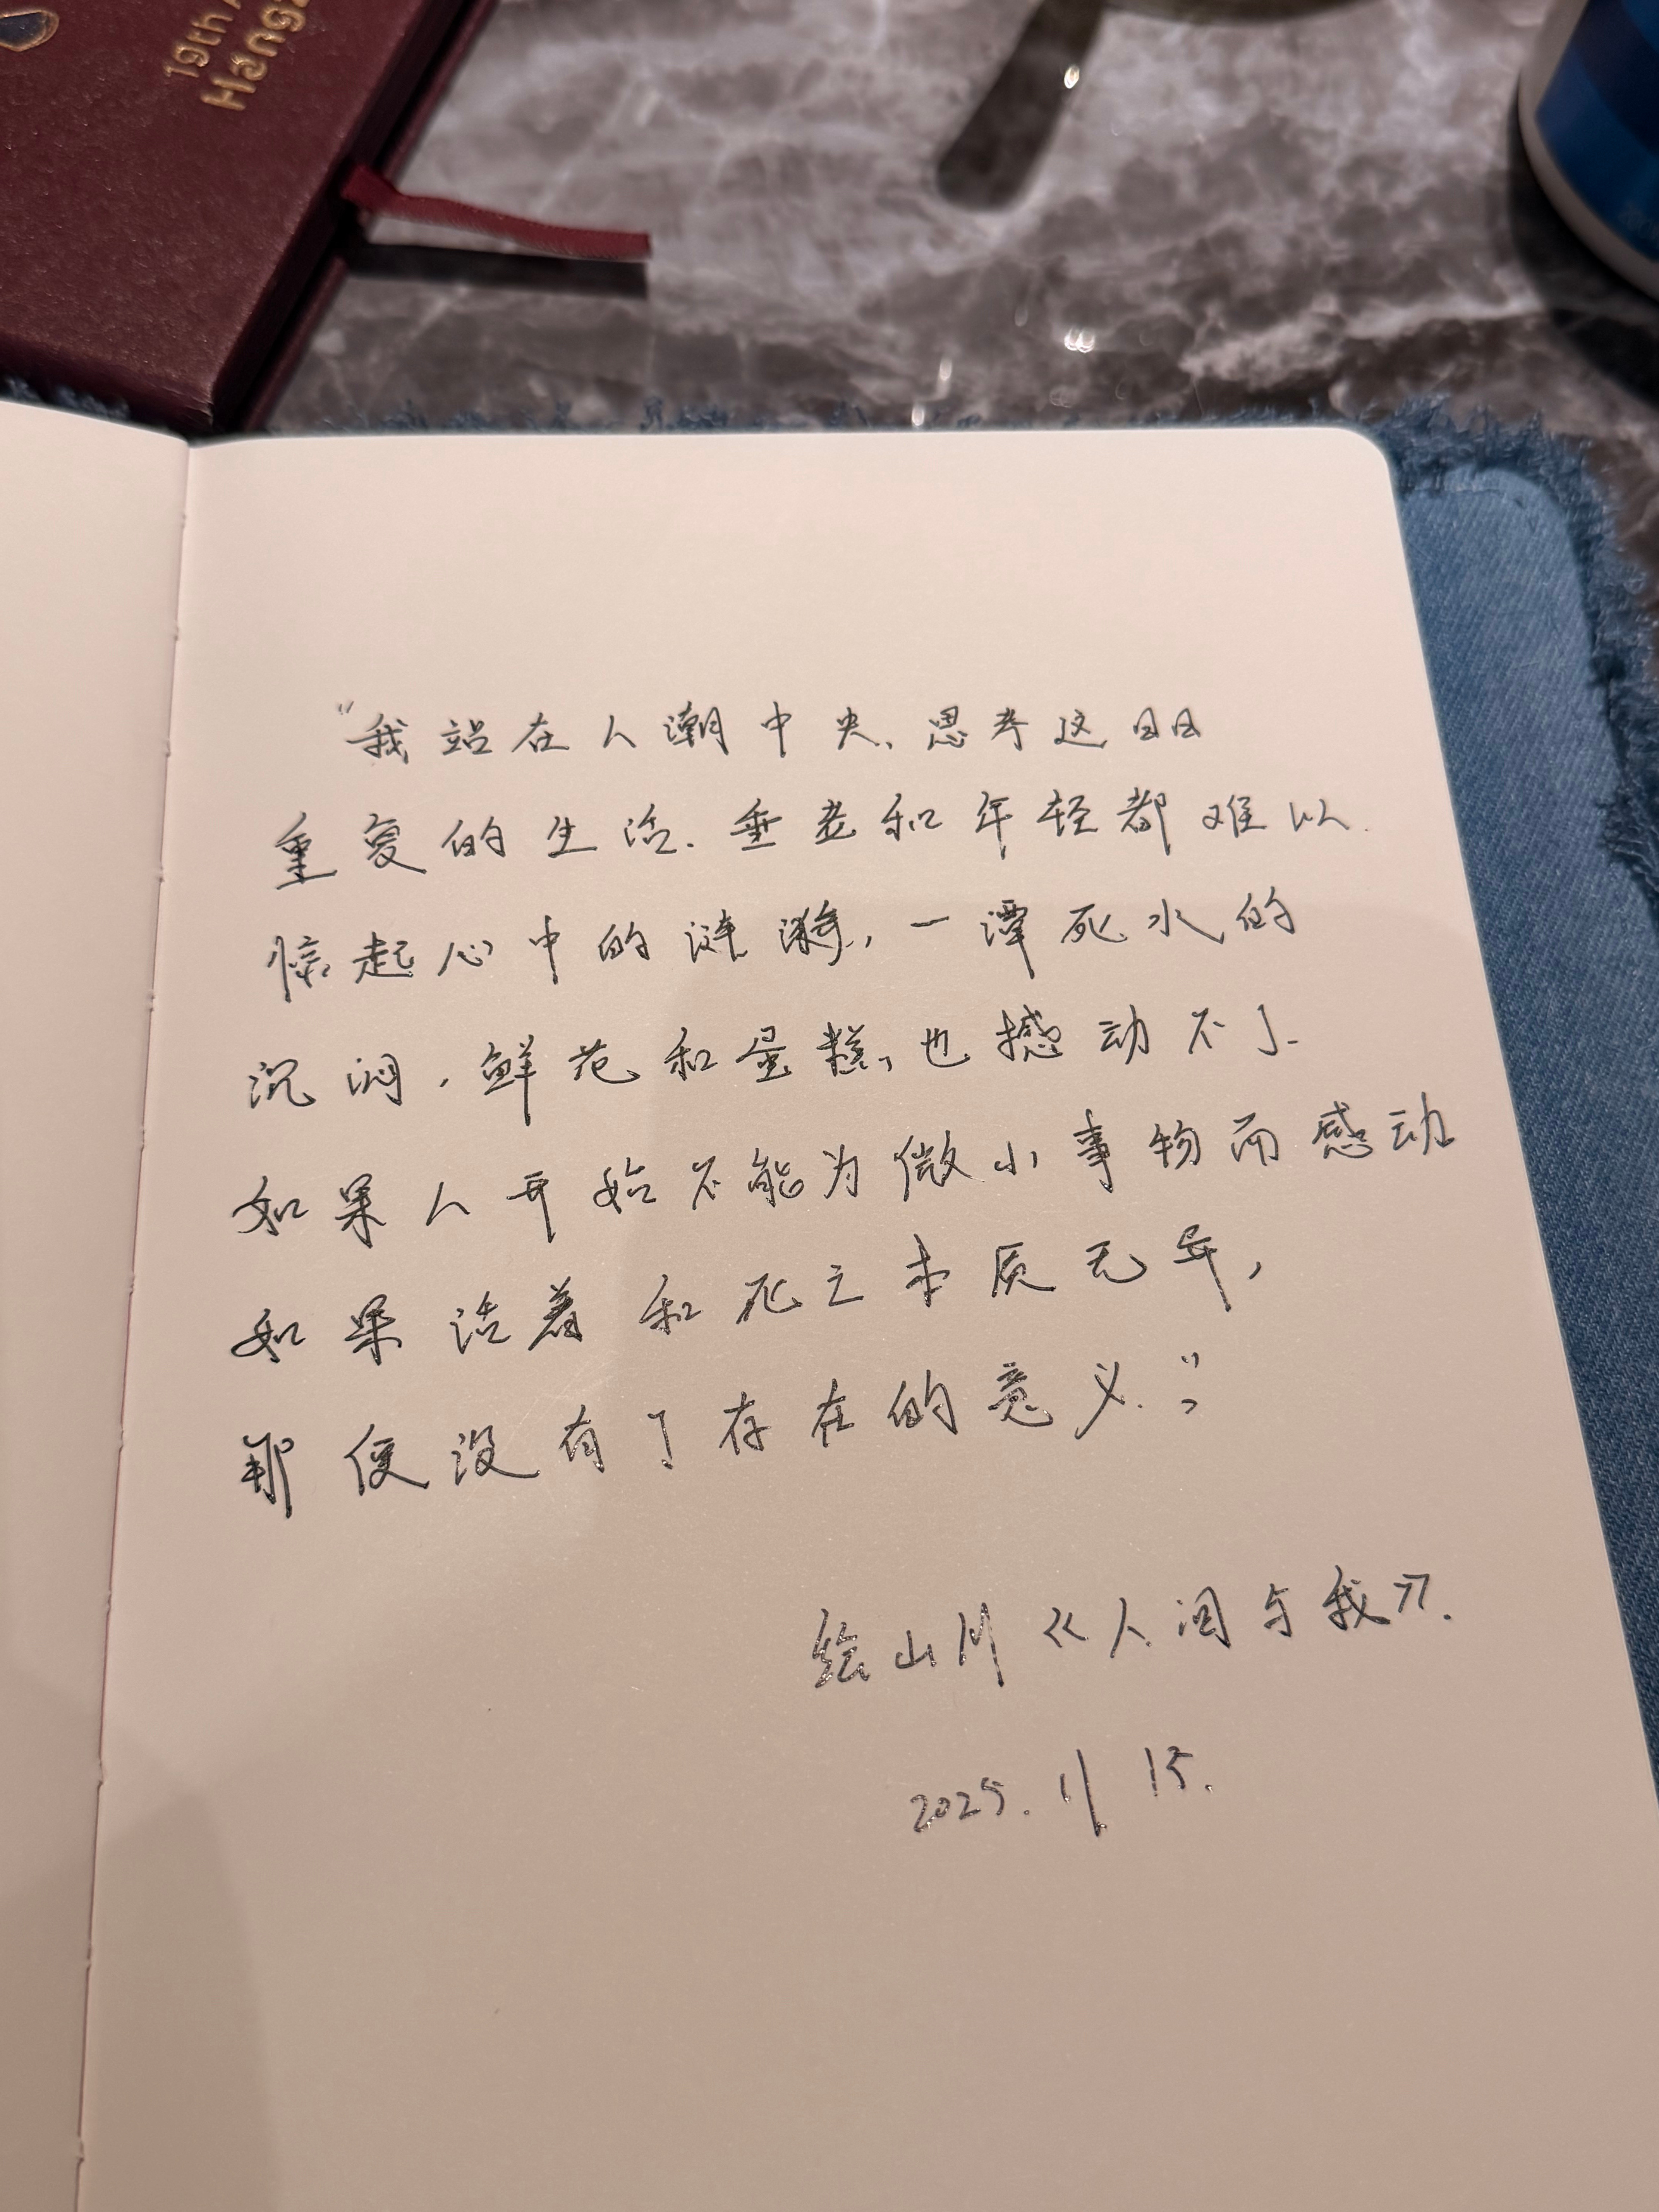 19th A
Hangz
“我站在人潮中央、思考这日日
重复的生活.垂老和年轻都难以
惊起心中的涟漪,一潭死水的
沉闷,鲜花和蛋糕,也撼动不了.
如果人开始不能为微小事物而感动
如果活着和死之本质无异,
那便没有了存在的意义.”
绘山川《人间与我》.
2025. 1/ 15.